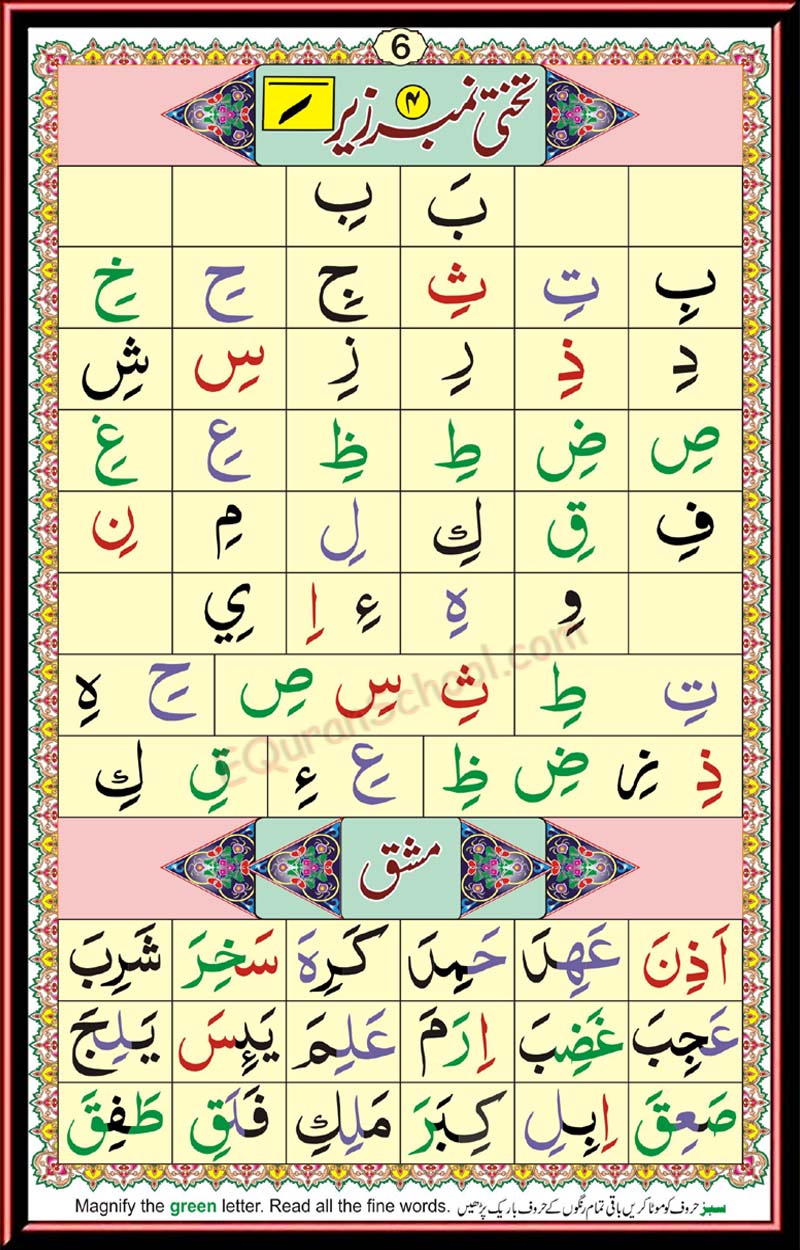 6
تختی نمبر ۴ زیر
بَ بِ
بِ تِ ثِ جِ حِ خِ
دِ ذِ رِ زِ سِ شِ
صِ ضِ طِ ظِ عِ غِ
فِ قِ كِ لِ مِ نِ
وِ هِ ءِ اِ يِ
تِ طِ ثِ سِ صِ حِ هِ
ذِ زِ ضِ ظِ عِ ءِ قِ كِ
مشق
اَذِنَ عَهِدَ حَمِدَ كَرِهَ سَخِرَ شَرِبَ
عَجِبَ غَضِبَ اِرَمَ عَلِمَ يَئِسَ يَلِجَ
صَعِقَ اِبِلِ كِبَرَ مَلِكِ فَلَقِ طَفِقَ
EQuranSchool.com
Magnify the green letter. Read all the fine words. سبز حروف کو موٹا کریں باقی تمام رنگوں کے حروف باریک پڑھیں